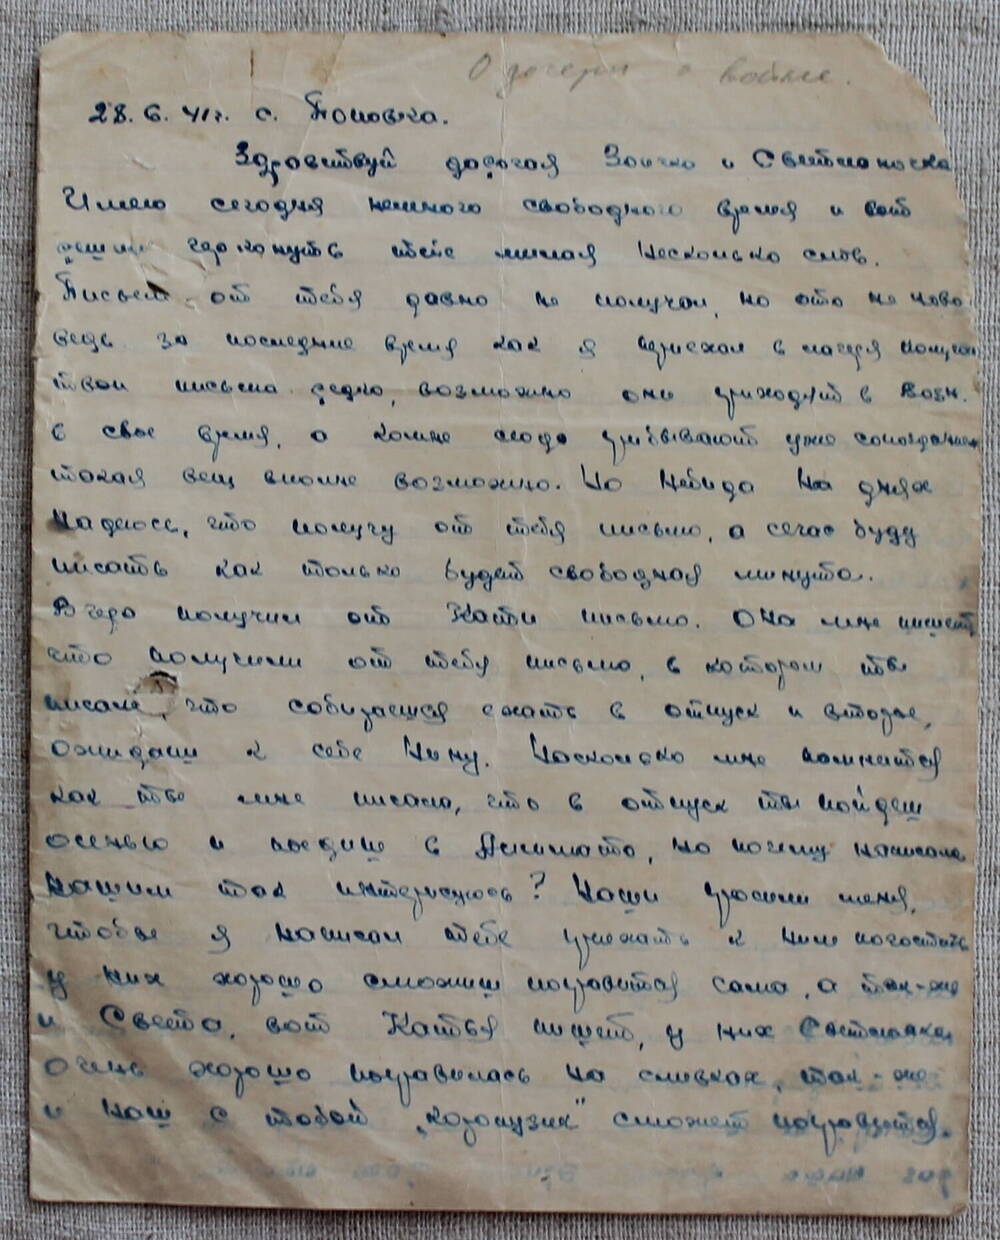 О дочери о войне.
28.6.41г. с. Поповка.
Здравствуй дорогая Зоичка и Светланочка
Имею сегодня немного свободного время и вот
решил черконуть тебе милая несколько слов.
Писем от тебя давно не получал, но это не ново
ведь за последнее время как я переехал в лагеря получаю
твои письма редко, возможно они приходят в Возн.
в свое время, а комне сюда прибывают уже с опозданием
такая вещ вполне возможно. Но небида на днях
надеюсь, что получу от тебя письмо, а сечас буду
писать как только будет свободная минута.
Вчера получил от Кати письмо. Она мне пишет,
что получили от тебя письмо, в котором ты
писала, что собираешся ехать в отпуск и второе,
ожидаеш к себе Нину. Насколько мне помнится
как ты мне писала, что в отпуск ты пойдеш
осенью и поедиш в Алмаата, но почему написала
нашим так интересуюсь? Наши просили меня,
чтобы я написал тебе приехать к ним погостить
у них хорошо сможиш поправится сама, а так-же
и Света, вот Катья пишет, у них Светланка
очень хорошо поправилась на сливках, так-же
и наш с тобой „карапузик" сможет поправится.